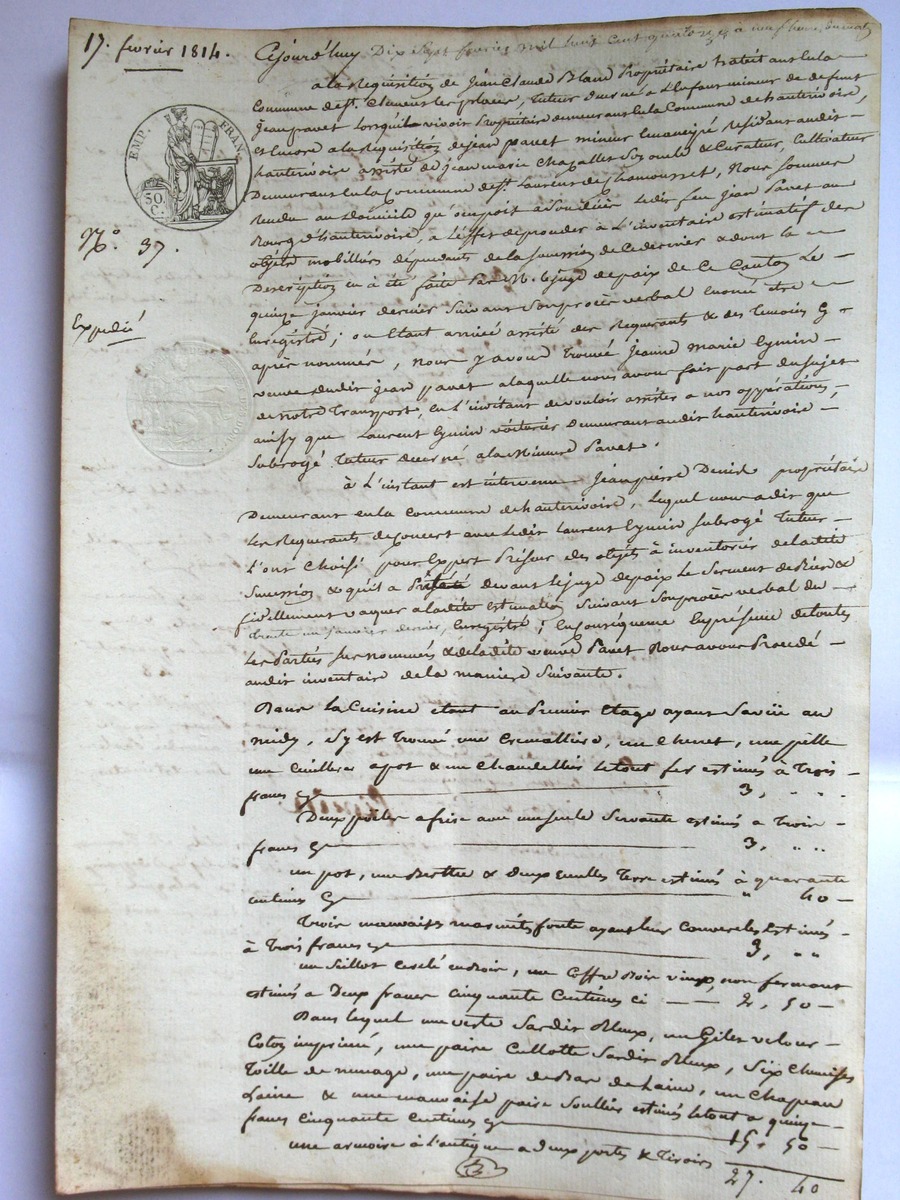 17. fevrier 1814.
Cejourd'huy Dix Sept fevrier mil huit Cent quatorze à neuf heures du matin
a la Requisition de Jean Claude Blanc Propriétaire
Commune de St. Clement les places, tuteur mineur de defunt
Jean pavet Lorsqu'il vivoit Propriétaire demeurant en la Commune de hauterivoire,
et Encore a la Requisition de jean pavet mineur Emancipé Residant audit
hauterivoire assisté de jean marie Chazalles Son oncle & Curateur, Cultivateur
Demeurant en la Commune de St. Laurent de Chamousset, Nous Sommes
Rendu au Domicile qu'occupoit ledit feu Jean Pavet au
Bourg d'hauterivoire, a L'effet de proceder à L'inventaire estimatif des
objets mobiliers dépendants de la Succession de Ce dernier & dont la
Description en a été faite Par M. le juge de paix de Ce Canton Le
quinze janvier dernier Suivant Son procès verbal Enregistré
Enregistré; ou Etant arrivé assisté des Requerants & des temoins
après nommés, Nous y avons trouvé Jeanne Marie Eymin
veuve dudit jean pavet a laquelle nous avons fait part du Sujet
de notre transport, en L'invitant de vouloir assister a nos oppérations,
ainsy que Laurent Eymin voiturier Demeurant audit hauterivoire
Subrogé Tuteur décerné a la Mineure Pavet.
à L'instant est intervenu Jean pierre Denis propriétaire
Demeurant en la Commune de hauterivoire, Lequel nous a dit que
Les Requerants de Concert avec Ledit Laurent Eymin Subrogé Tuteur
L'ont Choisi pour Expert Priseur des objets à inventorier de la dite
Succession & qu'il a Prêté devant le juge de paix Le Serment de Bien &
fidellement vaquer a la dite estimation Suivant Son procès verbal du
trente un janvier dernier, Enregistré; En Conséquence En présence de toutes
Les Parties Sus nommées & de la dite veuve Pavet Nous avons Procedé
audit inventaire de la maniere Suivante.
Dans la Cuisine étant au Premier Etage ayant Sa vüe au
midy, S'y est trouvé une Cremalliere, un Chenet, une pèlle
une Cuillere a pot & un Chandellier le tout fer estimés à trois
francs cy 3, " "
Deux poêles a frire avec une seule Servante estimés a trois
francs cy 3, " "
un pot, une Berthe & Deux Ecuelles Terre estimés à quarante
centimes cy " 40
Trois mauvaises marmites fonte ayant leur Couvercles Estimés
à Trois francs cy 3, " "
un Seillot Cerclé en Bois, un Coffre Bois vieux, non fermant
estimés a Deux francs Cinquante Centimes ci 2, 50
Dans lequel une veste Sardis Bleux, un Gilet velour
Coton imprimé, une paire Cullotte Sardis Bleux, Six Chemises
Toille de menage, une paire de Bas de Laine, un Chapeau
Laine & une mauvaise paire Soulliers estimés le tout a quinze
francs cinquante Centimes cy 15. 50
une armoire à L'antique a deux portes & Tiroirs 27. 40
EMP. FRAN.
50 C.
No. 37.
Expedié